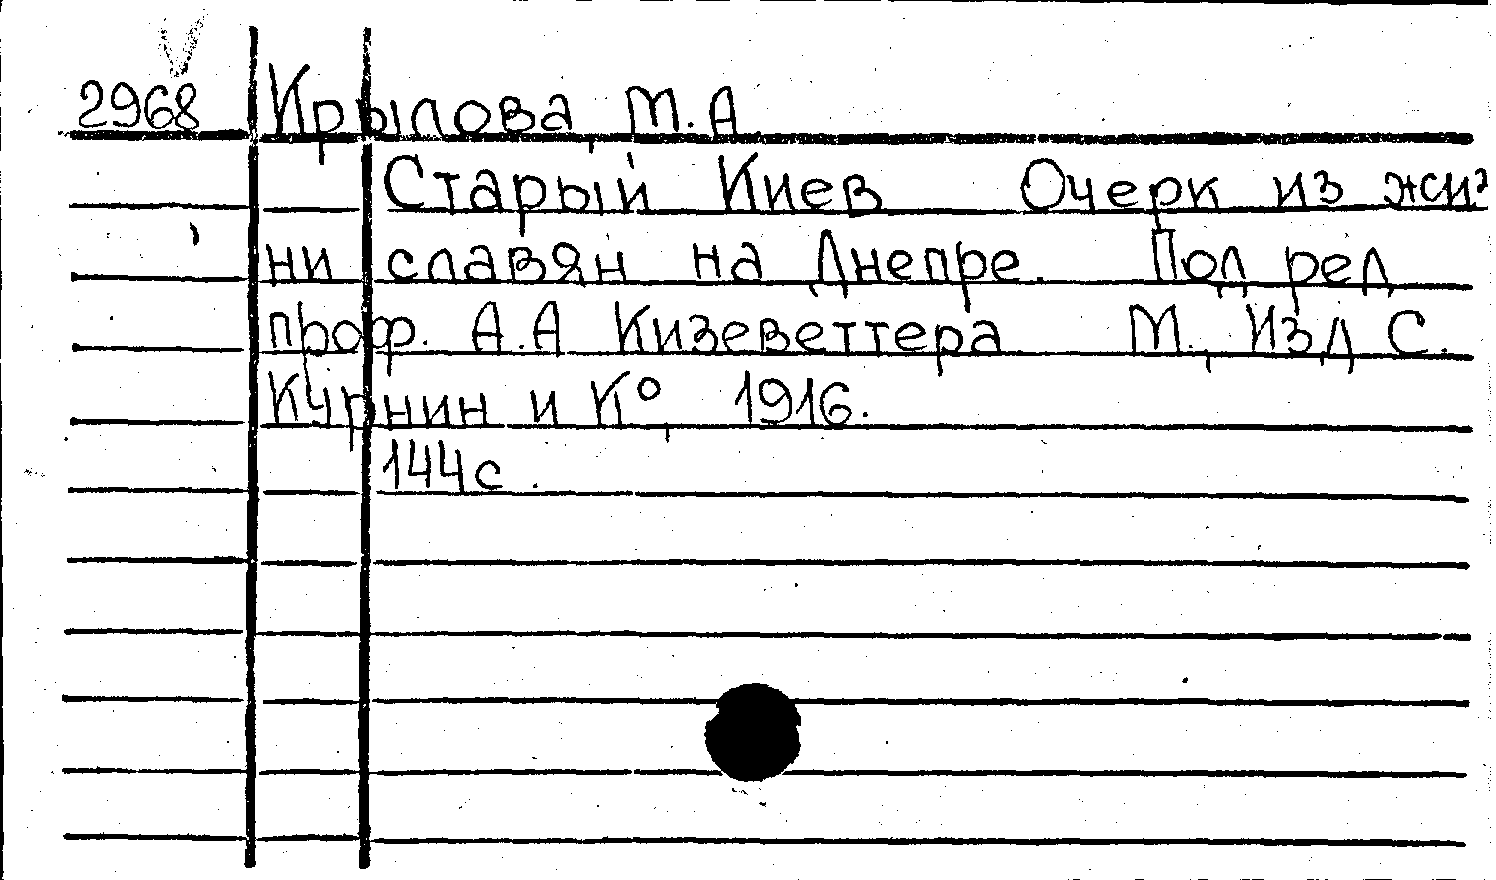 2968 Крылова, М.А
Старый Киев Очерк из жиз
ни славян на Днепре. Под ред
проф. А.А Кизеветтера М., Изд С.
Курнин и К°, 1916.
144с.